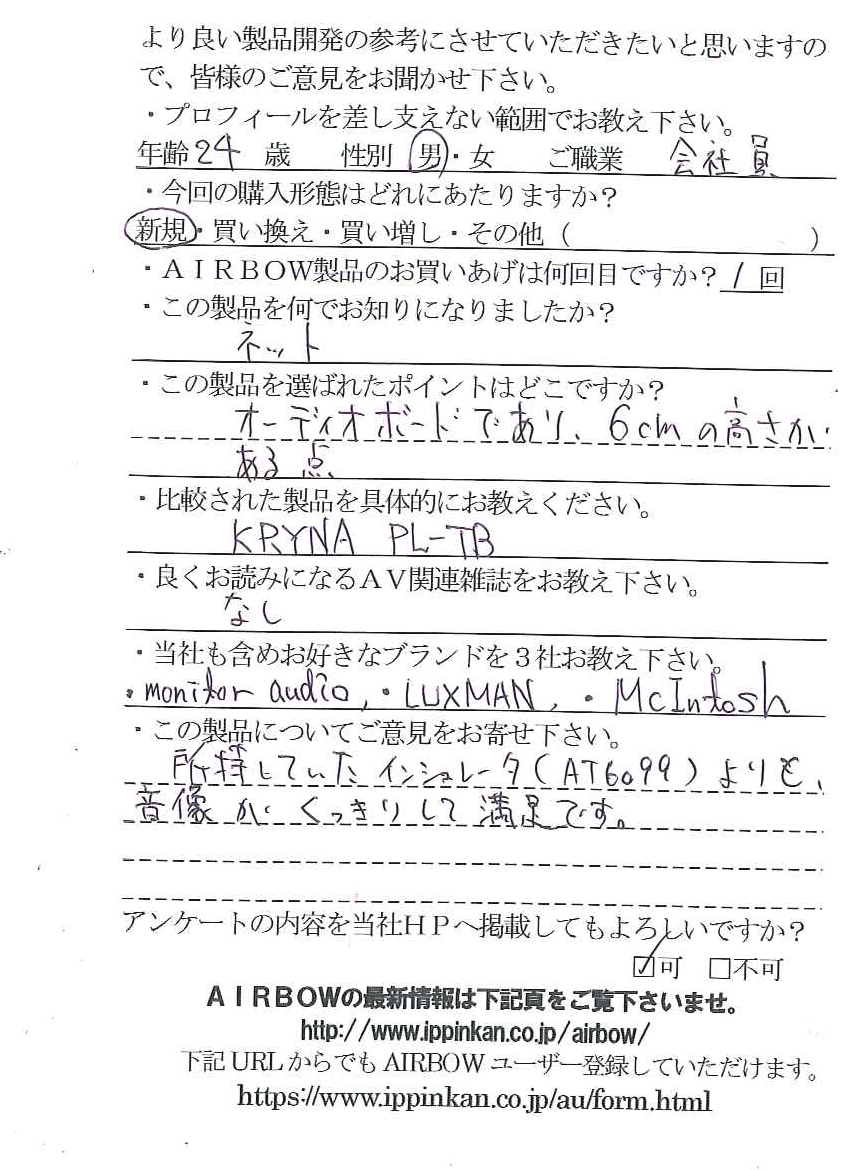 より良い製品開発の参考にさせていただきたいと思いますの
で、皆様のご意見をお聞かせ下さい。
・プロフィールを差し支えない範囲でお教え下さい。
年齢 24 歳 性別 男・女 ご職業 会社員
・今回の購入形態はどれにあたりますか?
新規・買い換え・買い増し・その他 ( )
・AIRBOW製品のお買いあげは何回目ですか? 1 回
・この製品を何でお知りになりましたか?
ネット
・この製品を選ばれたポイントはどこですか?
オーディオボードであり、6cmの高さが
ある点
・比較された製品を具体的にお教えください。
KRYNA PL-TB
・良くお読みになるAV関連雑誌をお教え下さい。
なし
・当社も含めお好きなブランドを3社お教え下さい。
・monitor audio, ・LUXMAN, ・McIntosh
・この製品についてご意見をお寄せ下さい。
所持していたインシュレータ(AT6099)よりも、
音像がくっきりして満足です。
アンケートの内容を当社HPへ掲載してもよろしいですか?
☑可 □不可
AIRBOWの最新情報は下記頁をご覧下さいませ。
http://www.ippinkan.co.jp/airbow/
下記URLからでもAIRBOWユーザー登録していただけます。
https://www.ippinkan.co.jp/au/form.html